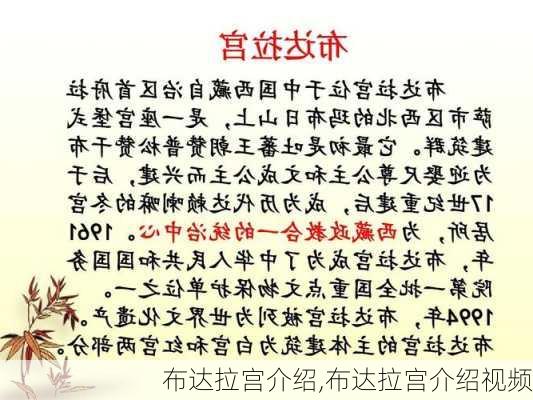 布达拉宫
布达拉宫位于中国西藏自治区首府拉
萨市区西北的玛布日山上，是一座宫堡式
建筑群。它最初是吐蕃王朝赞普松赞干布
为迎娶尺尊公主和文成公主而兴建，后于
17世纪重建后，成为历代达赖喇嘛的冬宫
居所，为西藏政教合一的统治中心。1961
年，布达拉宫成为了中华人民共和国国务
院第一批全国重点文物保护单位之一。
1994年，布达拉宫被列为世界文化遗产。
布达拉宫的主体建筑为白宫和红宫两部分。
布达拉宫介绍,布达拉宫介绍视频